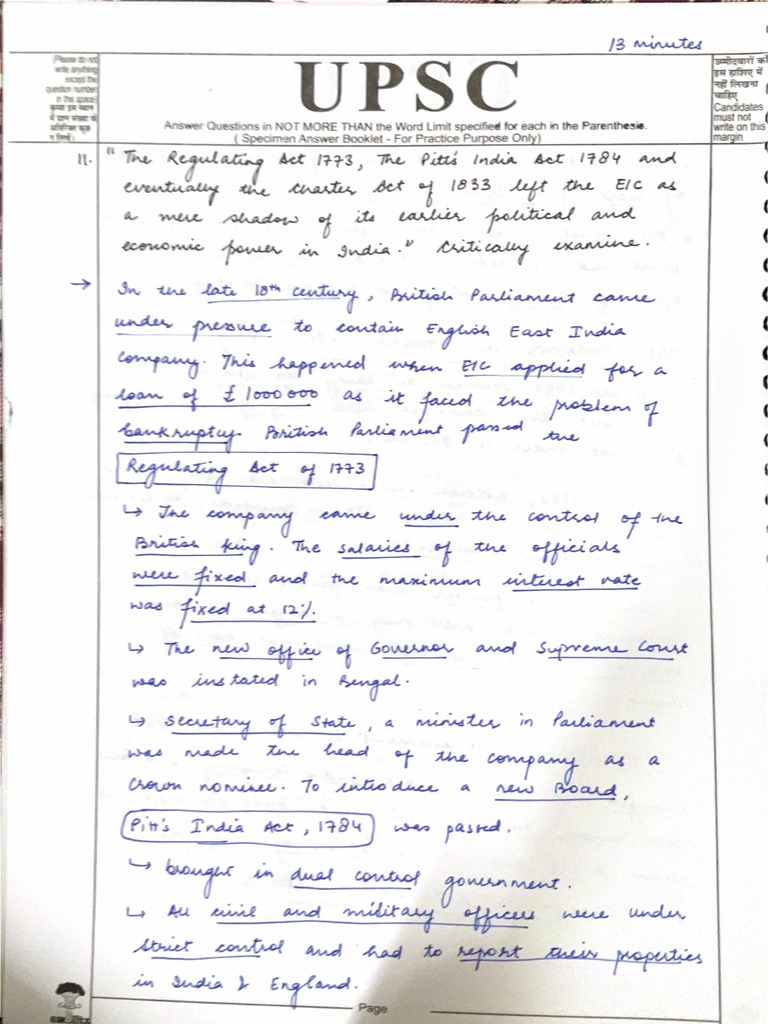 13 minutes
(Please do not
write anything
except the
question number
in this space)
कृपया इस स्थान
में प्रश्न संख्या के
अतिरिक्त कुछ
न लिखें)
UPSC
Answer Questions in NOT MORE THAN the Word Limit specified for each in the Parenthesis.
( Specimen Answer Booklet - For Practice Purpose Only)
उम्मीदवारों को
इस हाशिए में
नहीं लिखना
चाहिए
Candidates
must not
write on this
margin
11. "The Regulating Act 1773, The Pitt's India Act 1784 and
eventually the Charter Act of 1833 left the EIC as
a mere shadow of its earlier political and
economic power in India." Critically examine.
→ In the late 18th century, British Parliament came
under pressure to contain English East India
Company. This happened when EIC applied for a
loan of £ 1000000 as it faced the problem of
bankruptcy British Parliament passed the
Regulating Act of 1773
↳ The company came under the control of the
British king. The salaries of the officials
were fixed and the maximum interest rate
was fixed at 12%.
↳ The new office of Governor and Supreme Court
was instated in Bengal.
↳ Secretary of State, a minister in Parliament
was made the head of the company as a
crown nominee. To introduce a new Board,
Pitt's India Act, 1784 was passed.
↳ brought in dual control government.
↳ All civil and military officers were under
strict control and had to report their properties
in India & England.
Page